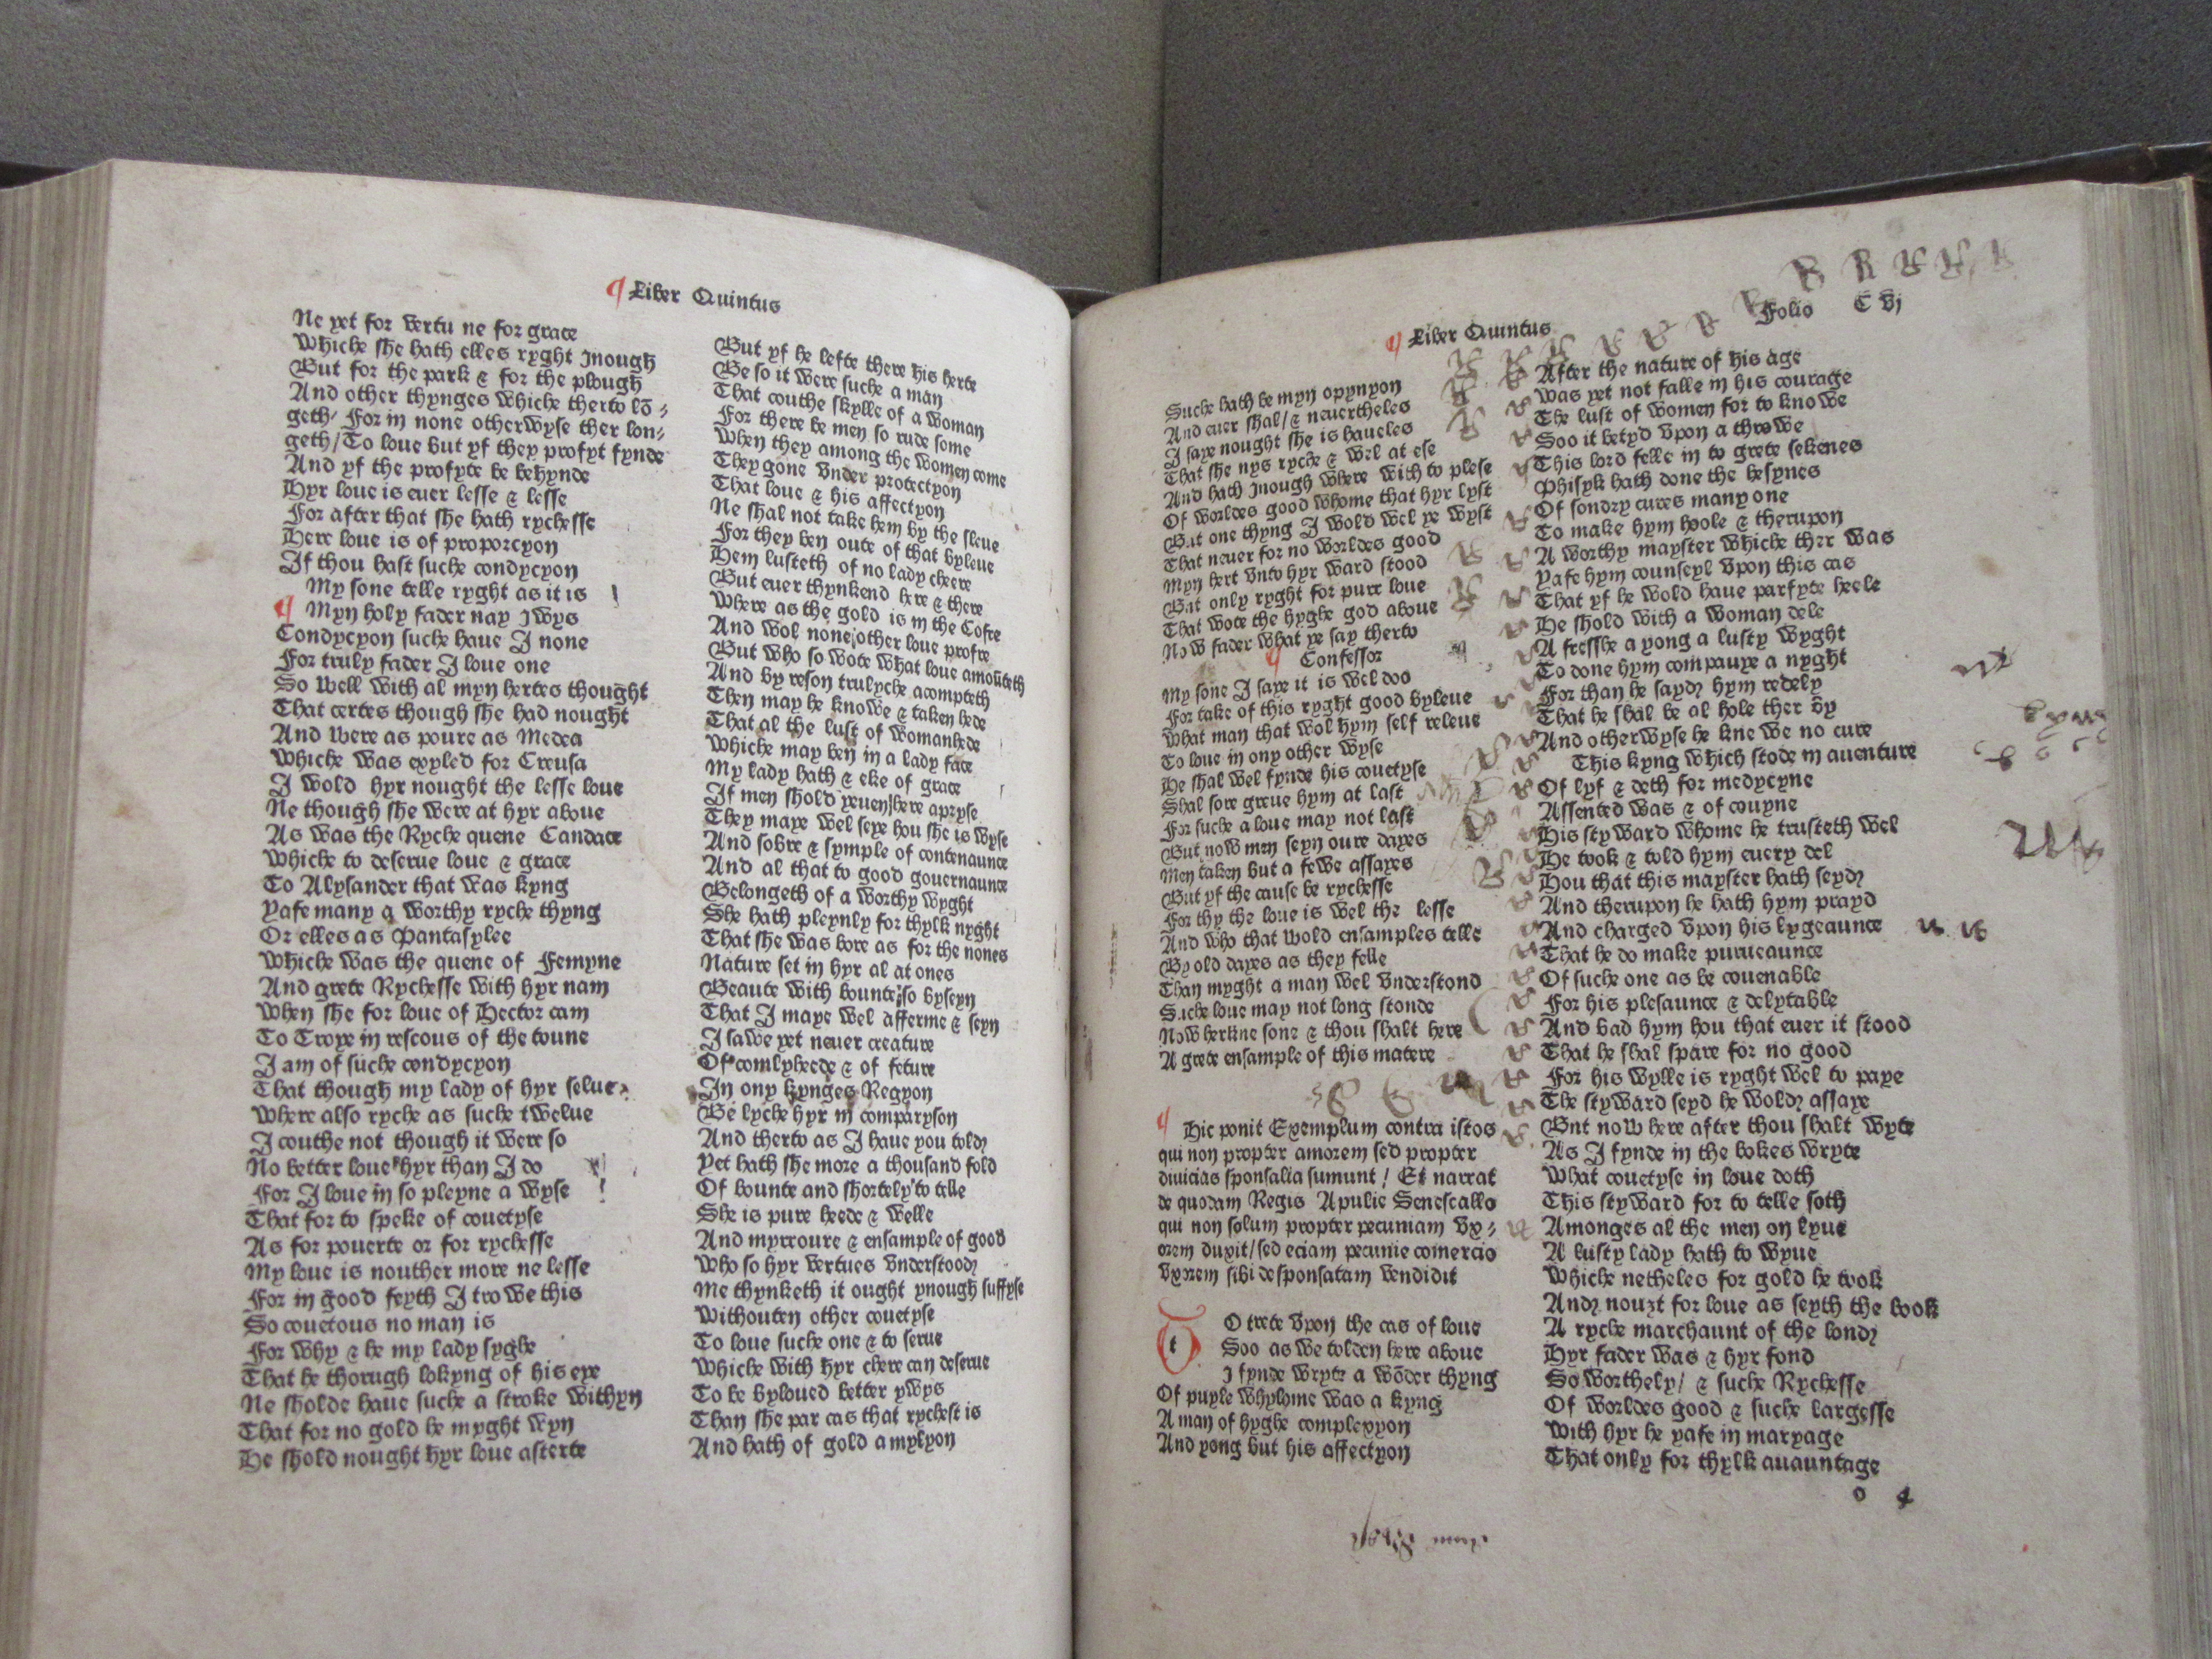 ¶ Liber Quintus
Ne yet for vertu ne for grace
Whiche she hath elles ryght ynough
But for the park & for the plough
And other thynges whiche therto lō⸗
geth/ For in none otherwyse ther lon⸗
geth/To loue but yf they profyt fynde
And yf the profyte be behynde
Hyr loue is euer lesse & lesse
For after that she hath rychesse
Here loue is of proporcyon
If thou hast suche condycyon
My sone telle ryght as it is
¶ Myn holy fader nay ywys
Condycyon suche haue I none
For truly fader I loue one
So well with al myn hertes thought
That certes though she had nought
And were as poure as Medea
Whiche was expyled for Creusa
I wold hyr nought the lesse loue
Ne though she were at hyr aboue
As was the Ryche quene Candace
Whiche to deserue loue & grace
To Alysander that was kyng
Yafe many a worthy ryche thyng
Or elles as Pantasylee
Whiche was the quene of Femyne
And grete Rychesse with hyr nam
When she for loue of Hector cam
To Troye in rescous of the toune
I am of suche condycyon
That though my lady of hyr selue
Where also ryche as suche twelue
I couthe not though it were so
No better loue hyr than I do
For I loue in so pleyne a wyse
That for to speke of couetyse
As for pouerte or for rychesse
My loue is nouther more ne lesse
For in good feyth I trowe this
So couetous no man is
For why & he my lady syghe
That he thorugh lokyng of his eye
Ne sholde haue suche a stroke withyn
That for no gold he myght wyn
He shold nought hyr loue asterte
But yf he lefte there his herte
Be so it were suche a man
That couthe skylle of a woman
For there be men so rude some
When they among the women come
They gone vnder protectyon
That loue & his affectyon
Ne shal not take hem by the sleue
For they ben oute of that byleue
Hem lusteth of no lady cheere
But euer thynkend here & there
Where as the gold is in the Cofre
And wol none other loue profre
But who so wote what loue amoūteth
And by reson trulyche acompteth
Then may he knowe & taken hede
That al the lust of womanhede
Whiche may ben in a lady face
My lady hath & eke of grace
If men shold yeuen here apryse
They maye wel seye hou she is wyse
And sobre & symple of contenaunce
And al that to good gouernaunce
Belongeth of a worthy wyght
She hath pleynly for thylk nyght
That she was bore as for the nones
Nature set in hyr al at ones
Beaute with bounte so byseyn
That I maye wel afferme & seyn
I sawe yet neuer creature
Of comlyheede & of feture
In ony kynges Regyon
Be lyche hyr in comparyson
And therto as I haue you told
Yet hath she more a thousand fold
Of bounte and shortely to telle
She is pure heede & welle
And myrroure & ensample of good
Who so hyr vertues vnderstood
Me thynketh it ought ynough suffyse
Withouten other couetyse
To loue suche one & to serue
Whiche with hyr chere can deserue
To be byloued better ywys
Than she par cas that rychest is
And hath of gold a mylyon
¶ Liber Quintus
Folio C vj
Suche hath be myn opynyon
And euer shal/& neuertheles
I saye nought she is haueles
That she nys ryche & wel at ese
And hath ynough where with to plese
Of worldes good whome that hyr lyst
But one thyng I wold wel ye wyst
That neuer for no worldes good
Myn hert vnto hyr ward stood
But only ryght for pure loue
That wote the hyghe god aboue
Now fader what ye say therto
¶ Confessor
My sone I saye it is wel doo
For take of this ryght good byleue
What man that wol hym self releue
To loue in ony other wyse
He shal wel fynde his couetyse
Shal sore greue hym at last
For suche a loue may not last
But now men seyn oure dayes
Men taken but a fewe assayes
But yf the cause be rychesse
For thy the loue is wel the lesse
And who that wold ensamples telle
By old dayes as they felle
Than myght a man wel vnderstond
Suche loue may not long stonde
Now herkne sone & thou shalt here
A grete ensample of this matere
¶ Hic ponit Exemplum contra istos
qui non propter amorem sed propter
diuicias sponsalia sumunt / Et narrat
de quodam Regis Apulie Senescallo
qui non solum propter pecuniam vx⸗
orem duxit/sed eciam pecunie comercio
vxorem sibi desponsatam vendidit
t O trete vpon the cas of loue
Soo as we tolden here aboue
I fynde wryte a wōder thyng
Of puyle whylome was a kyng
A man of hyghe complexyon
And yong but his affectyon
After the nature of his age
Was yet not falle in his courage
The lust of women for to knowe
Soo it betyd vpon a throwe
This lord felle in to grete sekenes
Phisyk hath done the besynes
Of sondry cures many one
To make hym hoole & therupon
A worthy mayster whiche ther was
Yafe hym counseyl vpon this cas
That yf he wold haue parfyte heele
He shold with a woman dele
A fresshe a yong a lusty wyght
To done hym compauye a nyght
For than he sayd hym redely
That he shal be al hole ther by
And otherwyse he knewe no cure
This kyng which stode in auenture
Of lyf & deth for medycyne
Assented was & of couyne
His styward whome he trusteth wel
He took & told hym euery del
Hou that this mayster hath seyd
And therupon he hath hym prayd
And charged vpon his lygeaunce
That he do make purueaunce
Of suche one as be couenable
For his plesaunce & delytable
And bad hym hou that euer it stood
That he shal spare for no good
For his wylle is ryght wel to paye
The styward seyd he wold assaye
Bnt now here after thou shalt wyte
As I fynde in the bokes wryte
What couetyse in loue doth
This styward for to telle soth
Amonges al the men on lyue
A lusty lady hath to wyue
Whiche netheles for gold he took
And nouzt for loue as seyth the book
A ryche marchaunt of the lond
Hyr fader was & hyr fond
So worthely/ & suche Rychesse
Of worldes good & suche largesse
With hyr he yafe in maryage
That only for thylk auauntage
o 4